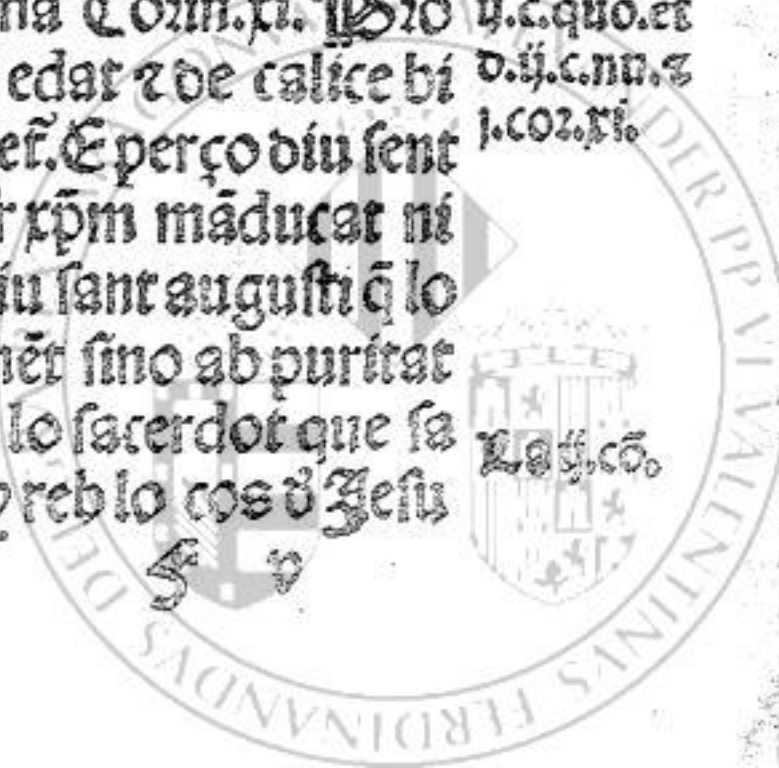 na Corin.xi. Pro
edat ⁊ de calice bi
et̃. E perço diu sent
r xp̄m mãducat ni
iu sant augusti q̃ lo
nẽt sino ab puritat
lo sacerdot que sa
reb lo cos d̕ Jesu
f v
ij.c.quo.et
d.ij.c.nu.⁊
j.cor.xi.
La ij.cõ.
FERDINANDVS
VALENTINVS
DER PP VI